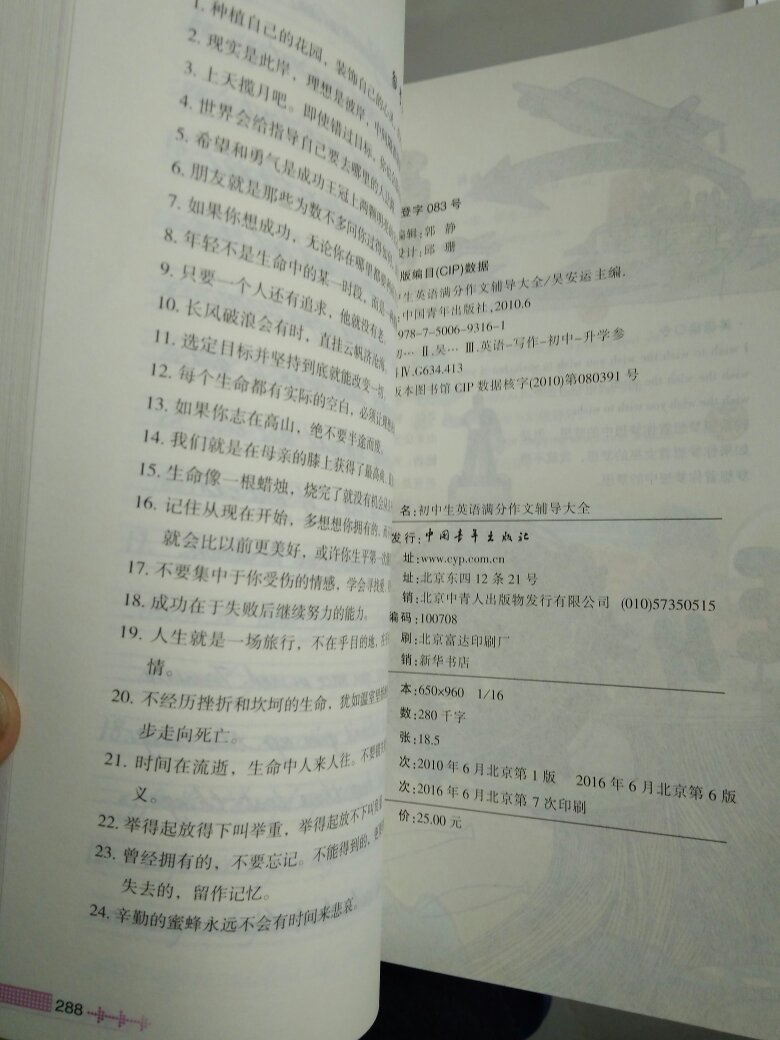 1. 种植自己的花园，装饰自己的心
2. 现实是此岸，理想是彼岸，中间隔
3. 上天揽月吧。即使错过目标，你也会
4. 世界会给指导自己要去哪里的人
5. 希望和勇气是成功王冠上两颗
6. 朋友就是那些为数不多问你过得
7. 如果你想成功，无论你在哪里都要
8. 年轻不是生命中的某一时段，而是一种
9. 只要一个人还有追求，他就没有老。
10. 长风破浪会有时，直挂云帆济沧海。
11. 选定目标并坚持到底就能改变一切
12. 每个生命都有实际的空白，必须让理想
13. 如果你志在高山，绝不要半途而废。
14. 我们就是在母亲的膝上获得了最高尚、
15. 生命像一根蜡烛，烧完了就没有机会
16. 记住从现在开始，多想想你拥有的，
就会比以前更美好，或许你生平第一次
17. 不要集中于你受伤的情感，学会寻找爱，
18. 成功在于失败后继续努力的能力。
19. 人生就是一场旅行，不在乎目的地，在乎
情。
20. 不经历挫折和坎坷的生命，犹如温室里
步走向死亡。
21. 时间在流逝，生命中人来人往。不要错
义。
22. 举得起放得下叫举重，举得起放不下叫负重
23. 曾经拥有的，不要忘记。不能得到的，
失去的，留作记忆。
24. 辛勤的蜜蜂永远不会有时间来悲哀。
288
登字 083 号
编辑：郭 静
设计：邱 珊
版编目(CIP)数据
中生英语满分作文辅导大全/吴安运主编.
：中国青年出版社，2010.6
978-7-5006-9316-1
初… Ⅱ.吴… Ⅲ.英语-写作-初中-升学参
Ⅳ.G634.413
版本图书馆 CIP 数据核字(2010)第080391 号
名：初中生英语满分作文辅导大全
发行：中国青年出版社
址：www.cyp.com.cn
址：北京东四 12 条 21 号
销：北京中青人出版物发行有限公司 (010)57350515
编码：100708
刷：北京富达印刷厂
销：新华书店
本：650×960 1/16
数：280 千字
张：18.5
次：2010 年 6 月北京第 1 版 2016 年 6 月北京第 6 版
次：2016 年 6 月北京第 7 次印刷
价：25.00 元